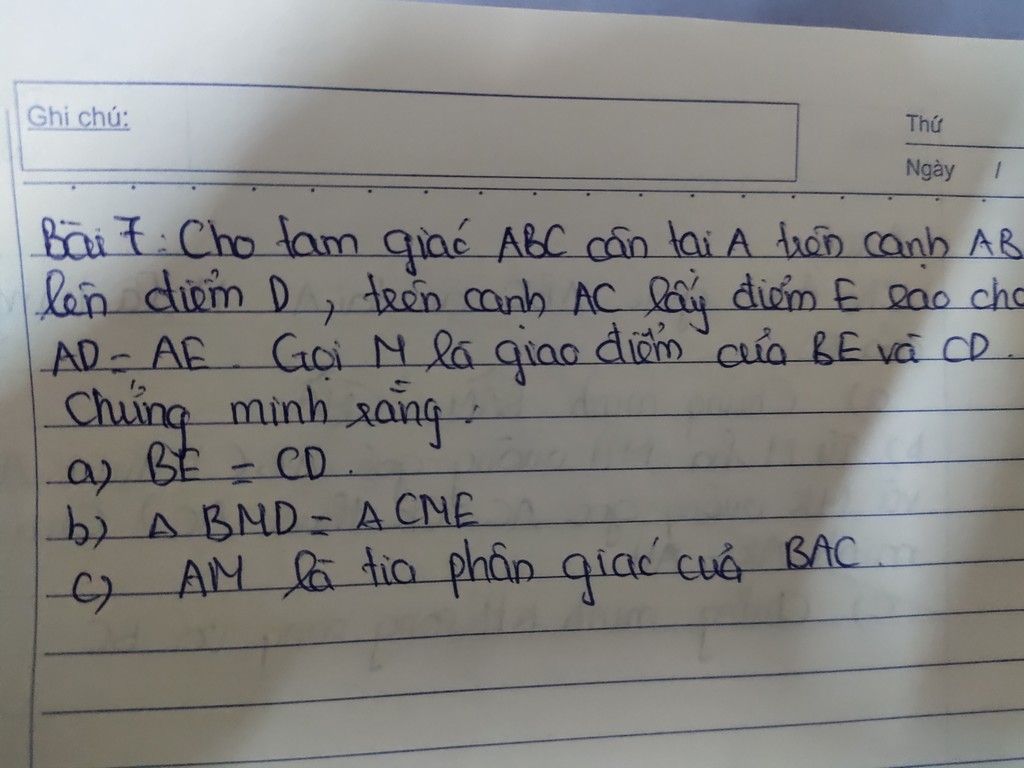 Ghi chú:
Thứ
Ngày /
Bài 7: Cho tam giác ABC cân tại A trên cạnh AB
lên điểm D, trên cạnh AC lấy điểm E sao cho
AD = AE. Gọi M là giao điểm của BE và CD.
Chứng minh rằng:
a) BE = CD.
b) Δ BMD = Δ CME
c) AM là tia phân giác cuả BAC.